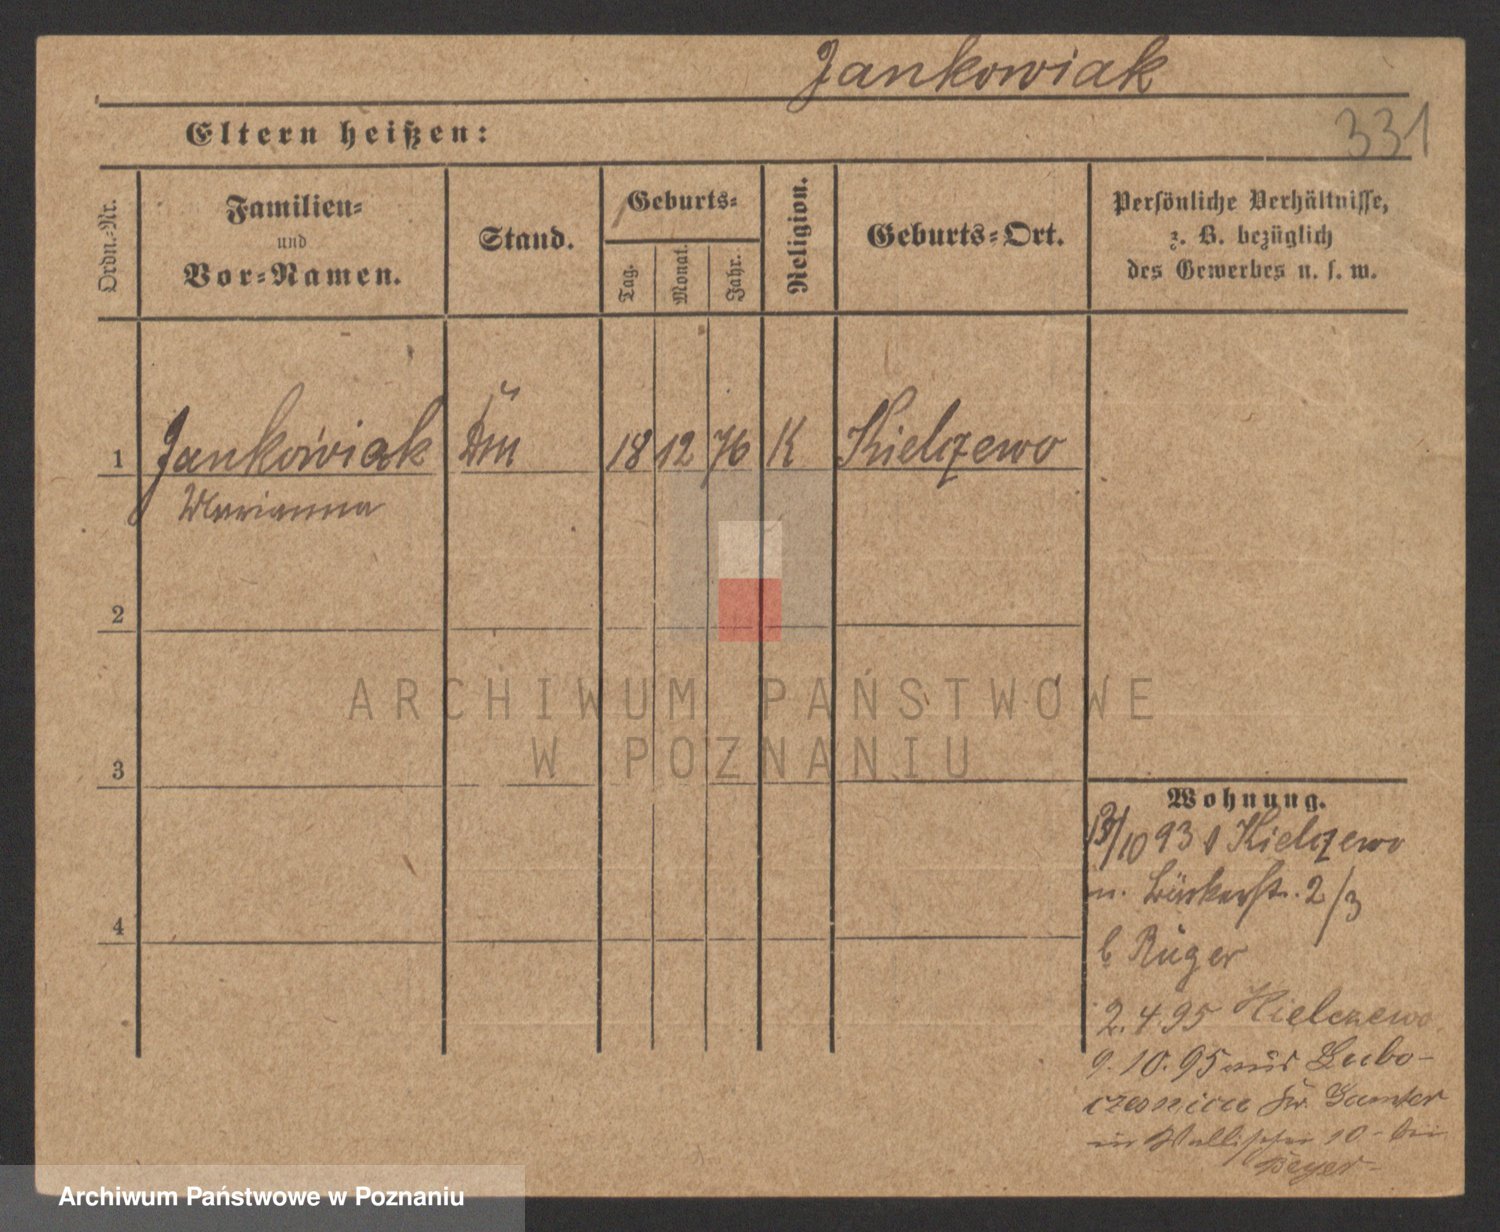 Jankowiak
331
Eltern heißen:
Ordn.-Nr.
Familien-
und
Vor-Namen.
Stand.
Geburts-
Tag.
Monat.
Jahr.
Religion.
Geburts-Ort.
Persönliche Verhältnisse,
z. B. bezüglich
des Gewerbes u. s. w.
1 Jankowiak 18 12 76 K Kielczewo
Marianna
2
ARCHIWUM PAŃSTWOWE
W POZNANIU
3
Wohnung.
10 93 Kielczewo
n. Bäckerstr. 2/3
b Rüger
4
2.4.95 Kielczewo
9.10.95 aus Lubo-
Kr. Samter
in Wallischei 10 bei
Archiwum Państwowe w Poznaniu